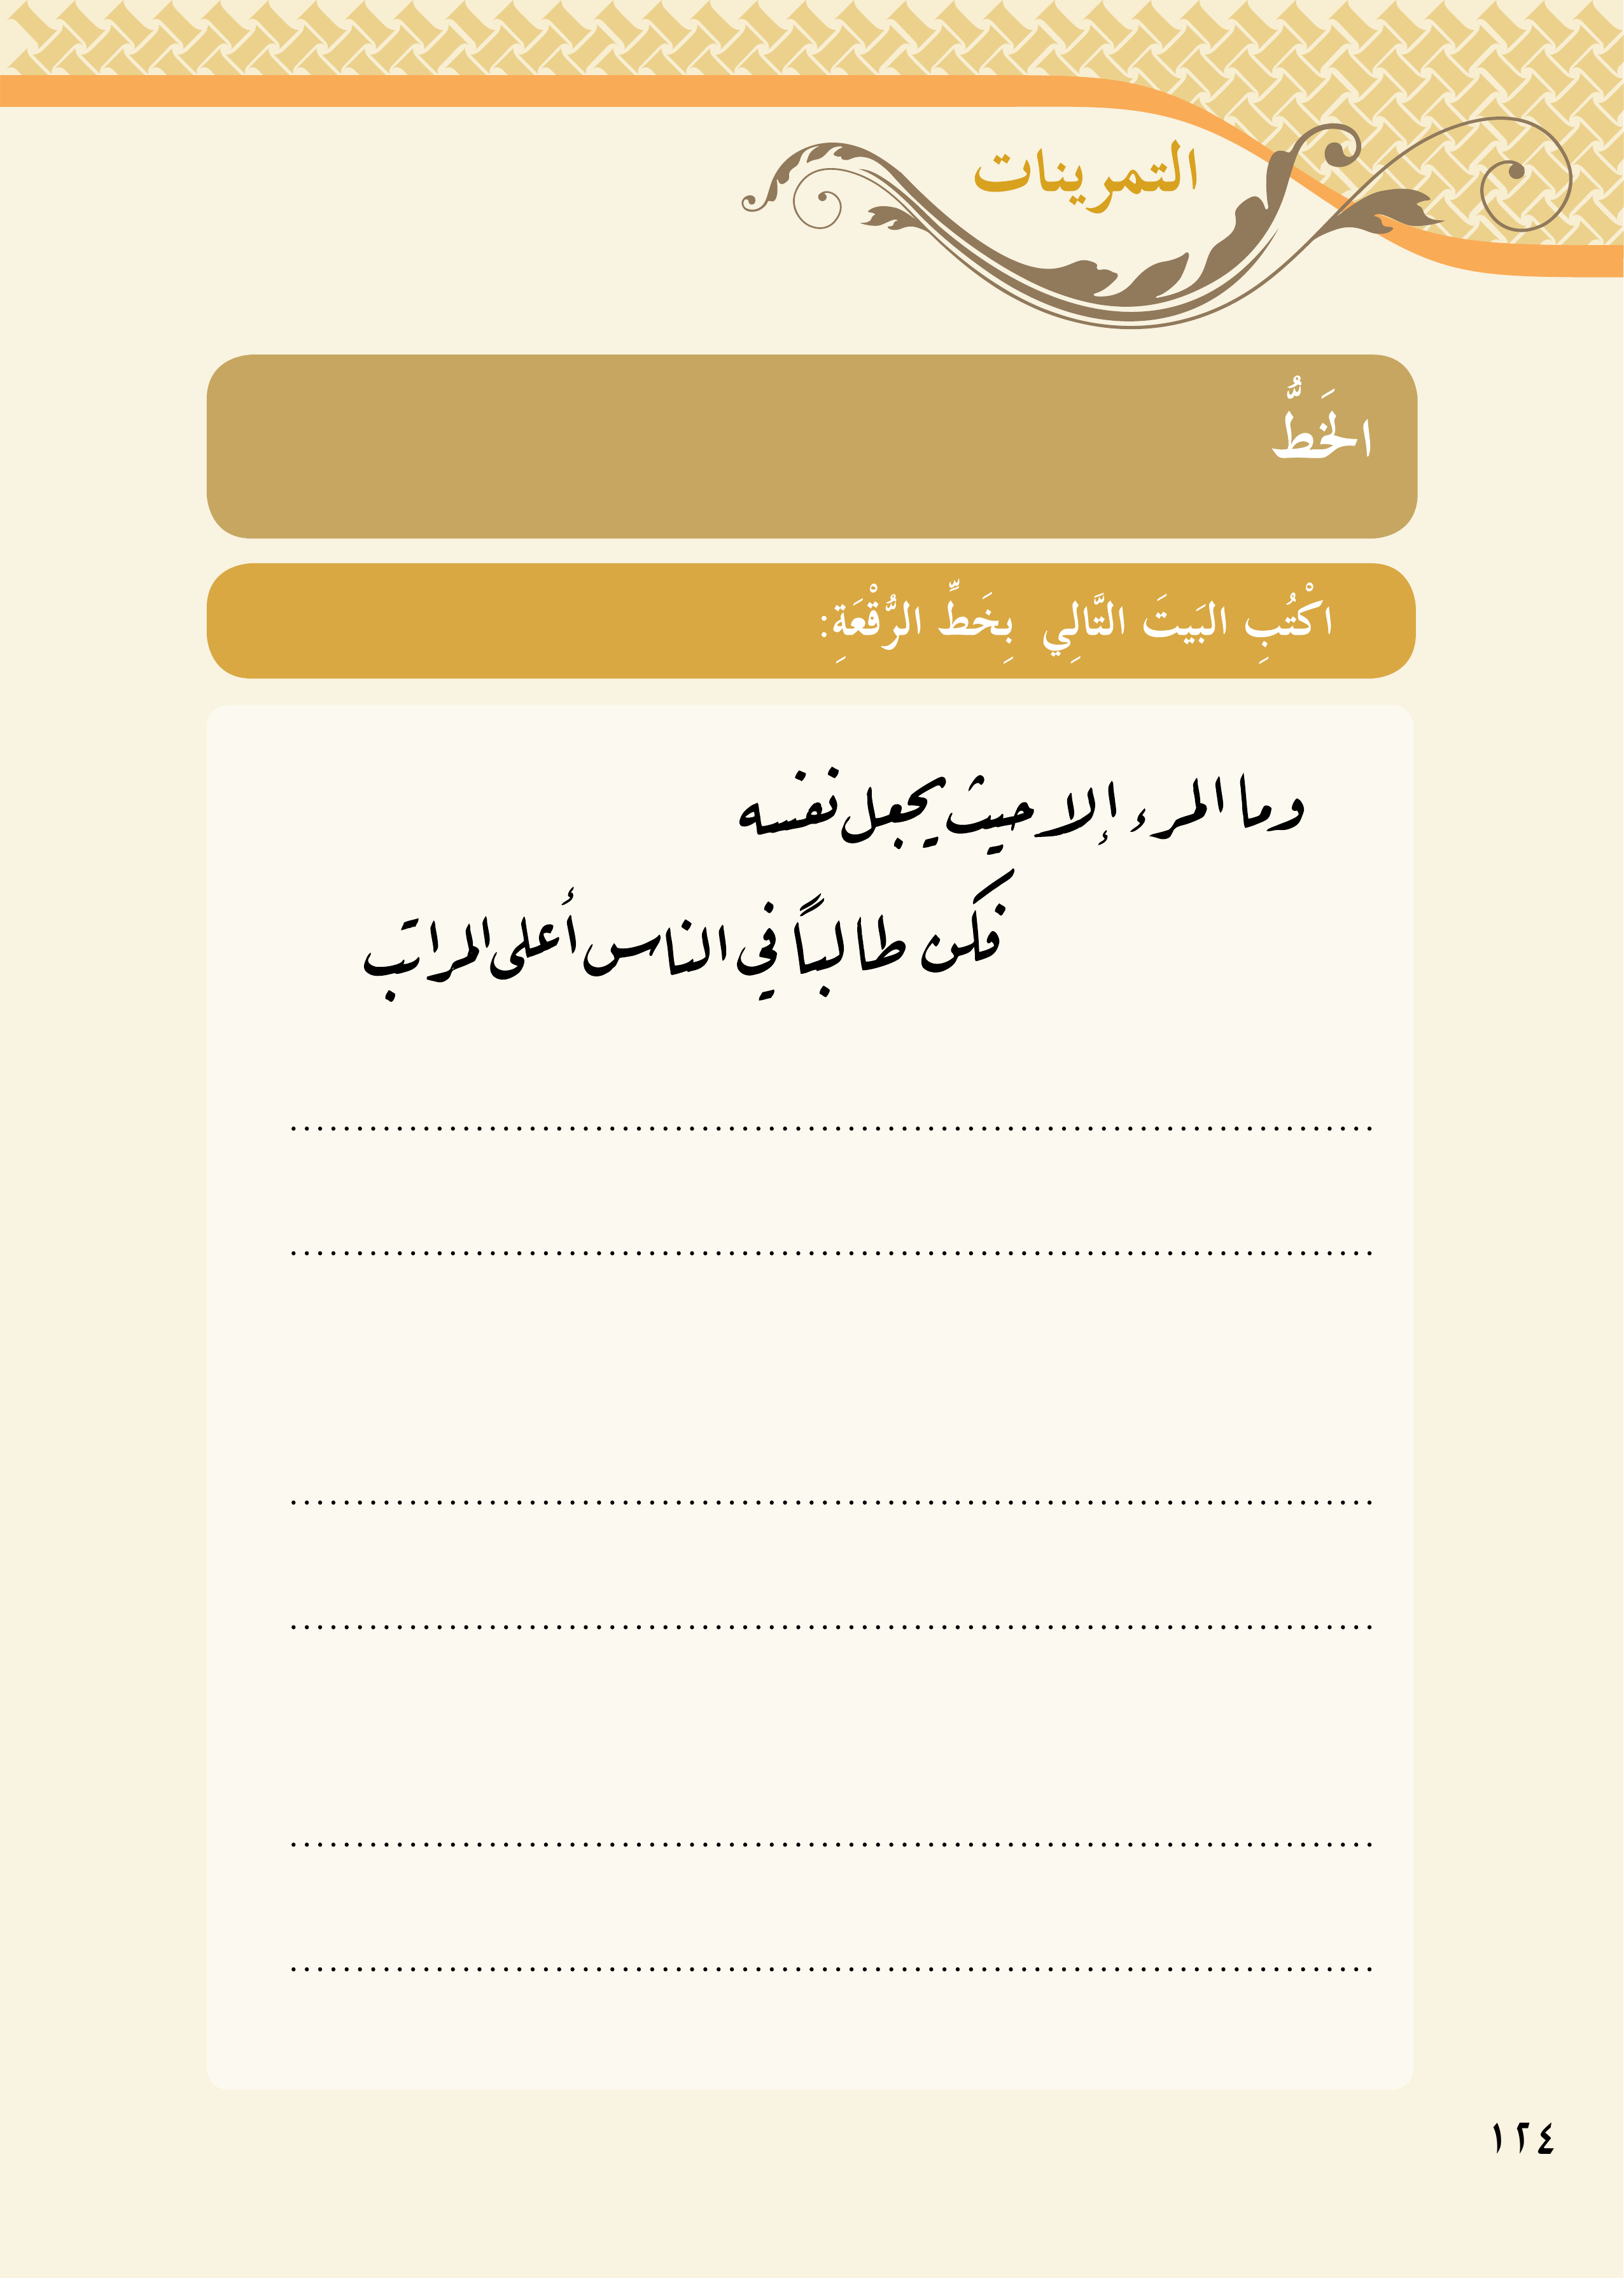 التمرينات
الخَطُّ
اكْتُبِ البَيتَ التَّالِي بِخَطِّ الرُّقْعَةِ:
وما المرء إلا حيث يجعل نفسه
فكن طالباً في الناس أعلى المراتب
١٢٤